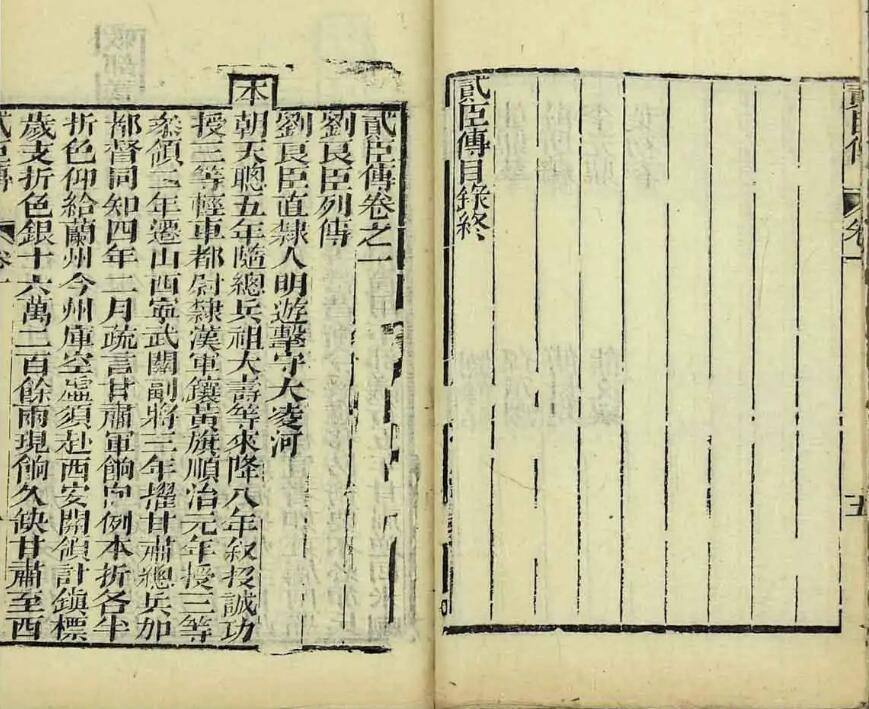 貳臣傳 卷一
五
貳臣傳目錄終
貳臣傳卷之一
劉良臣列傳
劉良臣直隸人明遊擊守大凌河
本
朝天聰五年隨總兵祖大壽等來降八年叙投誠功
授三等輕車都尉隸漢軍鑲黃旗順治元年授三等
叅領二年遷山西寧武關副將三年擢甘肅總兵加
都督同知四年二月疏言甘肅軍餉向例本折各半
折色仰給蘭州今州庫空虛須赴西安開領計鎮標
歲支折色銀十六萬二百餘兩現餉久缺甘肅至西
貳臣傳 卷一